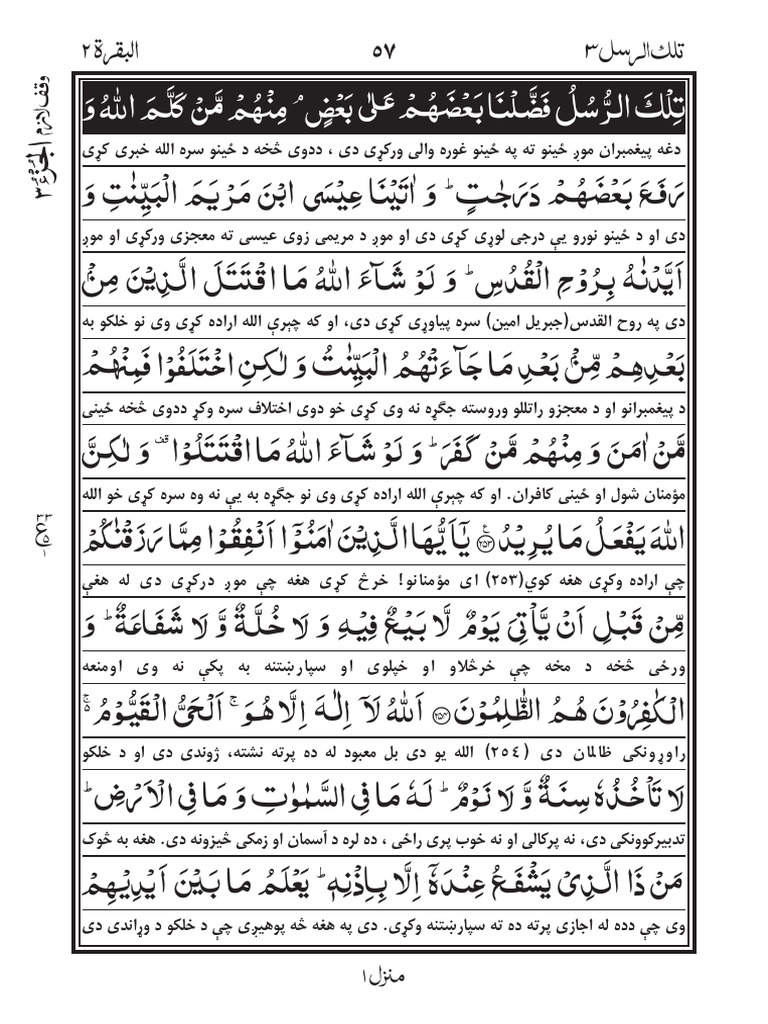 تلك الرسل ٣
٥٧
البقرة ٢
وقف لازم
الجزء ٣
تِلْكَ الرُّسُلُ فَضَّلْنَا بَعْضَهُمْ عَلٰى بَعْضٍ ۘ مِنْهُمْ مَّنْ كَلَّمَ اللّٰهُ وَ
دغه پیغمبران موږ ځینو ته په ځینو غوره والی ورکړی دی ، ددوی څخه د ځینو سره الله خبری کړی
رَفَعَ بَعْضَهُمْ دَرَجٰتٍ ؕ وَ اٰتَيْنَا عِيْسَى ابْنَ مَرْيَمَ الْبَيِّنٰتِ وَ
دی او د ځینو نورو یې درجی لوړی کړی دی او موږ د مریمی زوی عیسی ته معجزی ورکړی او موږ
اَيَّدْنٰهُ بِرُوْحِ الْقُدُسِ ؕ وَ لَوْ شَآءَ اللّٰهُ مَا اقْتَتَلَ الَّذِيْنَ مِنْۢ
دی په روح القدس(جبریل امین) سره پیاوړی کړی دی، او که چېرې الله اراده کړی وی نو خلکو به
بَعْدِهِمْ مِّنْۢ بَعْدِ مَا جَآءَتْهُمُ الْبَيِّنٰتُ وَ لٰكِنِ اخْتَلَفُوْا فَمِنْهُمْ
د پیغمبرانو او د معجزو راتللو وروسته جګړه نه وی کړی خو دوی اختلاف سره وکړ ددوی څخه ځینی
مَّنْ اٰمَنَ وَ مِنْهُمْ مَّنْ كَفَرَ ؕ وَ لَوْ شَآءَ اللّٰهُ مَا اقْتَتَلُوْا ۫ وَ لٰكِنَّ
مؤمنان شول او ځینی کافران. او که چېرې الله اراده کړی وی نو جګړه به یې نه وه سره کړی خو الله
اللّٰهَ يَفْعَلُ مَا يُرِيْدُ ﴿۲۵۳﴾ يٰۤاَيُّهَا الَّذِيْنَ اٰمَنُوْۤا اَنْفِقُوْا مِمَّا رَزَقْنٰكُمْ
چې اراده وکړی هغه کوي(٢٥٣) ای مؤمنانو! خرڅ کړی هغه چې موږ درکړی دی له هغې
مِّنْ قَبْلِ اَنْ يَّاْتِيَ يَوْمٌ لَّا بَيْعٌ فِيْهِ وَ لَا خُلَّةٌ وَّ لَا شَفَاعَةٌ ؕ وَ
ورځی څخه د مخه چې خرڅلاو او خپلوی او سپارښتنه به پکې نه وی اومنعه
الْكٰفِرُوْنَ هُمُ الظّٰلِمُوْنَ ﴿۲۵۴﴾ اَللّٰهُ لَاۤ اِلٰهَ اِلَّا هُوَ ۚ اَلْحَيُّ الْقَيُّوْمُ ۚ۬
راوړونکی ظالمان دی (٢٥٤) الله یو دی بل معبود له ده پرته نشته، ژوندی دی او د خلکو
لَا تَاْخُذُهٗ سِنَةٌ وَّ لَا نَوْمٌ ؕ لَهٗ مَا فِي السَّمٰوٰتِ وَ مَا فِي الْاَرْضِ ؕ
تدبیرکوونکی دی، نه پرکالی او نه خوب پری راځی ، ده لره د آسمان او زمکی څیزونه دی. هغه به څوک
مَنْ ذَا الَّذِيْ يَشْفَعُ عِنْدَهٗۤ اِلَّا بِاِذْنِهٖ ؕ يَعْلَمُ مَا بَيْنَ اَيْدِيْهِمْ
وی چې دده له اجازې پرته ده ته سپارښتنه وکړي. دی په هغه څه پوهیږی چې د خلکو د وړاندی دی
منزل ١